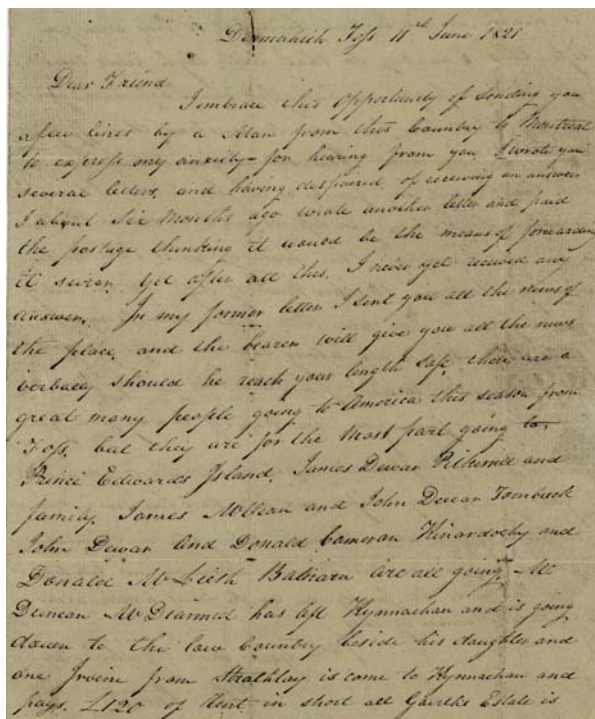 Foss 11th June 1821
Dear Friend
I embrace this Opportunity of Sending you
a few lines by a Man from this Country to Montreal
to express my anxiety for hearing from you I wrote you
several letters, and having despaired of receiving an answer
I about Six Months ago wrote another letter and paid
the postage thinking it would be the means of forwarding
it sooner. Yet after all this, I never yet received any
answer. In my former letter I sent you all the news of
the place, and the bearer will give you all the news
verbally should he reach your length safe, there are a
great many people going to America this season from
Foss, but they are for the Most part going to
Prince Edwards Island, James Dewar and
family, James McLean and John Dewar
John Dewar and Donald Cameron and
Donald are all going. Mr
Duncan McDiarmid has left Kynnachan and is going
down to the low Country beside his daughter and
one Irvine from Strathtay is come to Kynnachan and
pays £120 of Rent in short all Estate is